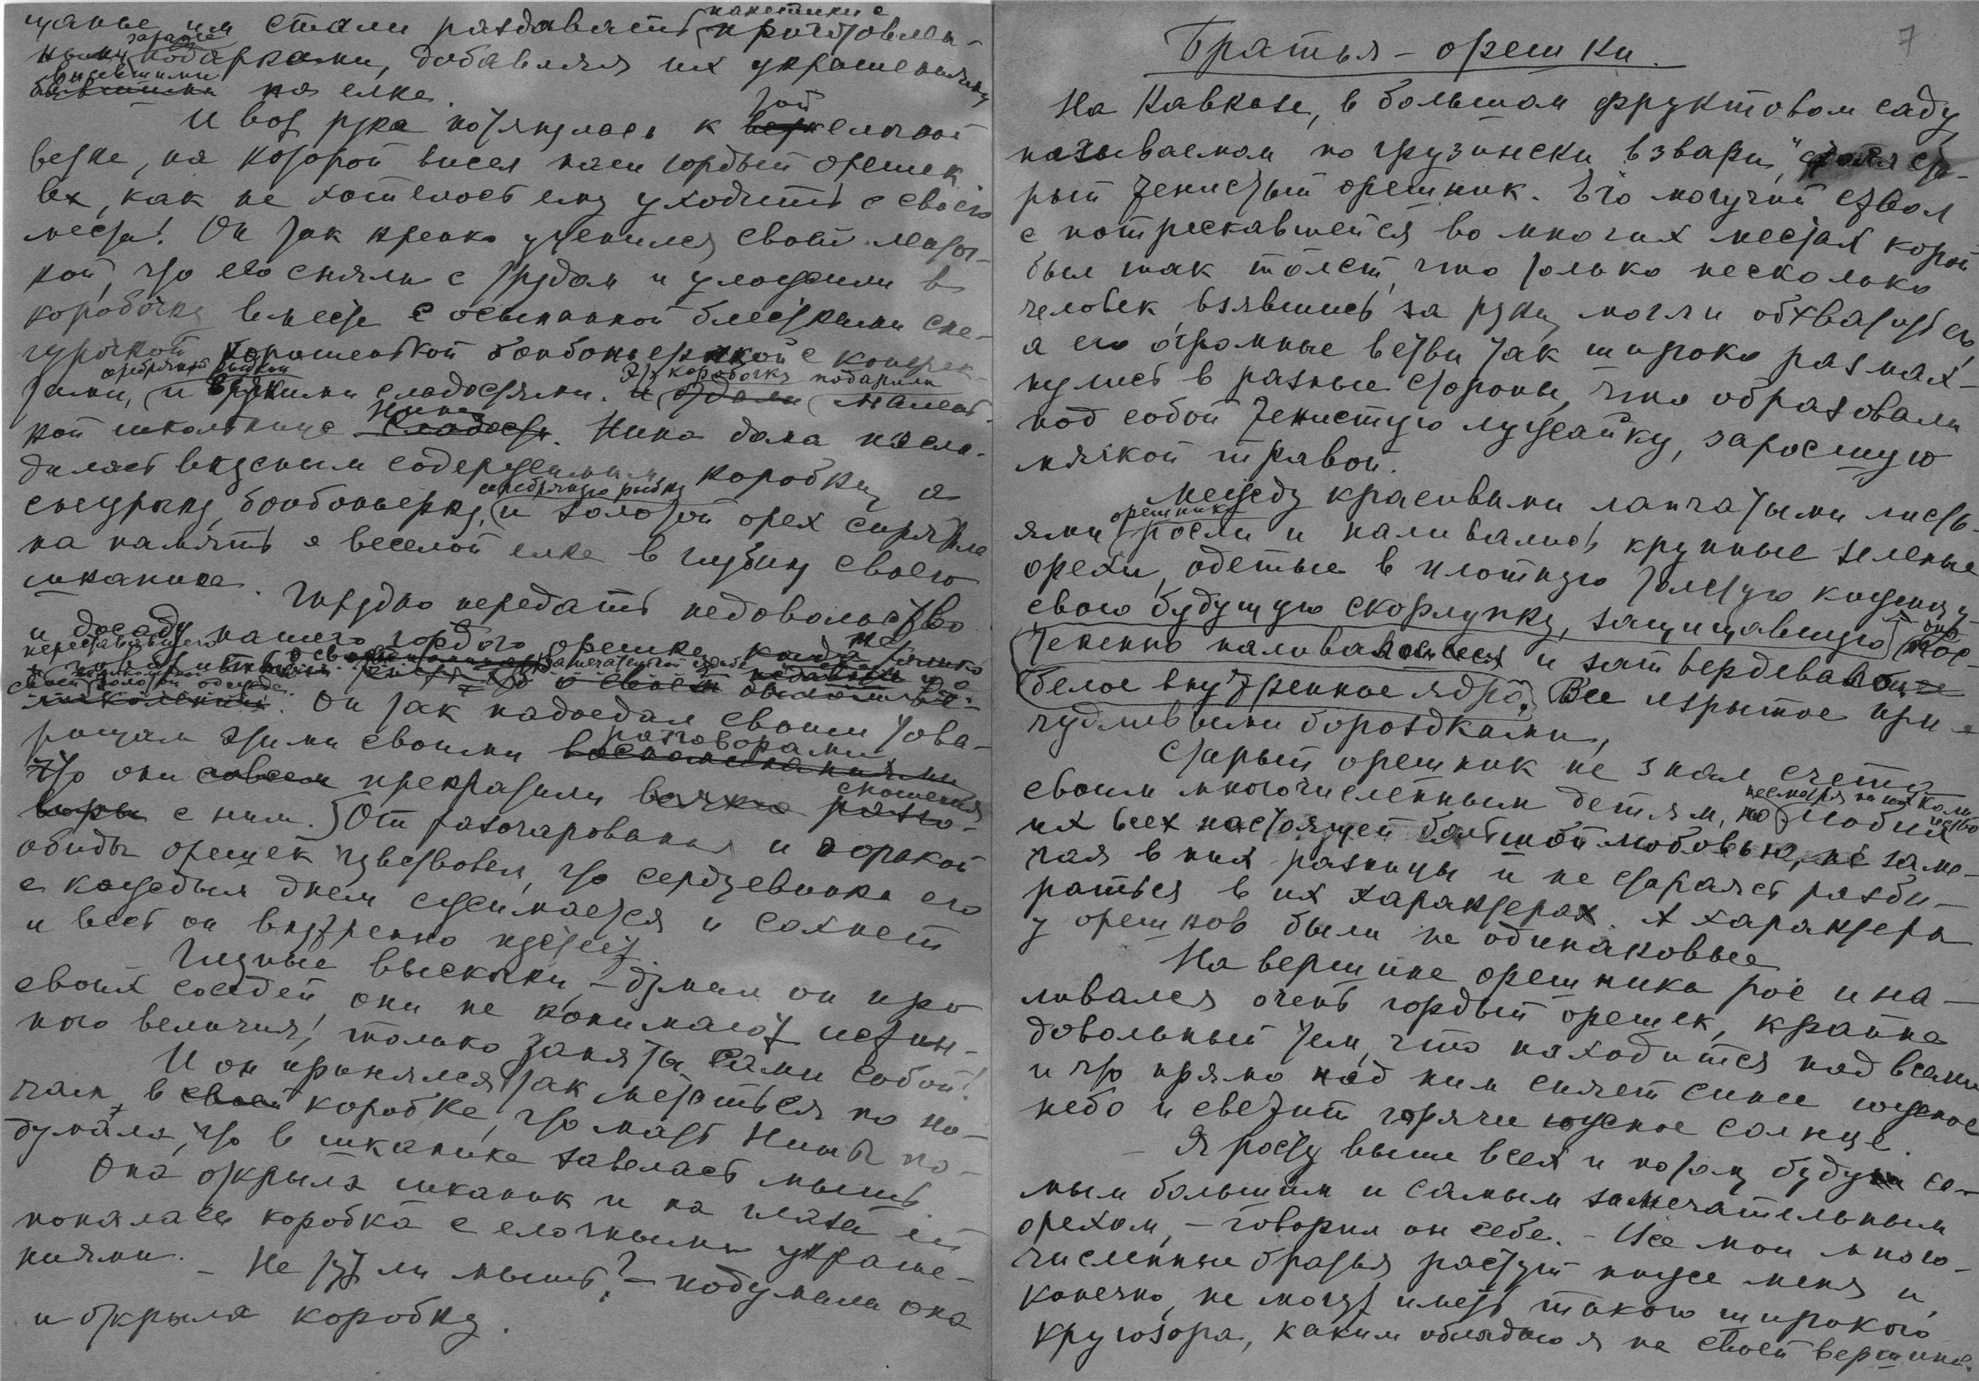 щанье им стали раздавать пакетики с приготовлен-
ными заранее подарками, добавляя их украшениями
висевшими на елке.
И вот рука потянулась к той елочной
ветке, на которой висел наш гордый орешек.
Ах, как не хотелось ему уходить с своего
места! Он так крепко уцепился своей ленточ-
кой, что его сняли с трудом и уложили в
коробочку вместе с осыпанной блестками сне-
гурочкой хорошенькой бонбоньеркой с конфек-
тами, серебряной рыбкой и другими сладостями. Эту коробочку подарили малень-
кой школьнице Нине. Нина дома насла-
дилась вкусным содержимым коробки, а
снегурку, бонбоньерку, серебряную рыбку и золотой орех спрятала
на память о веселой елке в глубину своего
шкапика. Трудно передать недовольство
и досаду нашего гордого орешка
Он так надоедал своим това-
рищам этими своими разговорами
что они совсем прекратили всякие сношения
с ним. От разочарования и горькой
обиды орешек чувствовал, что сердцевинка его
с каждым днем сжимается и сохнет
и весь он внутренно пустеет.
Глупые выскочки, – думал он про
своих соседей, они не понимают истин-
ного величия, только заняты сами собой!
И он принялся так метаться по но-
чам, в своей коробке, что мать Нины по-
думала, что в шкапике завелась мышь.
Она открыла шкапик и на глаза ей
попалась коробка с елочными украше-
ниями. – Не тут ли мышь? – подумала она
и открыла коробку.
7
Братья – орешки.
На Кавказе, в большом фруктовом саду
называемом по грузински взвари, ста-
рый тенистый орешник. Его могучий ствол
с потрескавшейся во многих местах корой
был так толст, что только несколько
человек взявшись за руки, могли обхватить его,
а его огромные ветви так широко размах-
нулись в разные стороны, что образовали
под собой тенистую лужайку, заросшую
мягкой травой.
Между красивыми лапчатыми листь-
ями орешника росли и наливались крупные зеленые
орехи, одетые в плотную толстую кожицу,
свою будущую скорлупку, защищавшую
постепенно наливающееся и затвердевающее
белое внутреннее ядро, Все изрытое при-
чудливыми бороздками,
Старый орешник не знал счета
своим многочисленным детям, но несмотря на их количество любил
их всех настоящей большой любовью, не заме-
чая в них разницы и не стараясь разби-
раться в их характерах. А характеры
у орешков были не одинаковые
На вершине орешника рос и на-
ливался очень гордый орешек, крайне
довольный тем, что находится над всеми
и что прямо над ним сияет синее южное
небо и светит горячее южное солнце.
– Я расту выше всех и потому буду са-
мым большим и самым замечательным
орехом, – говорил он себе. – Все мои много-
численные братья растут ниже меня и,
конечно, не могут иметь такого широкого
кругозора, каким обладаю я на своей вершине.